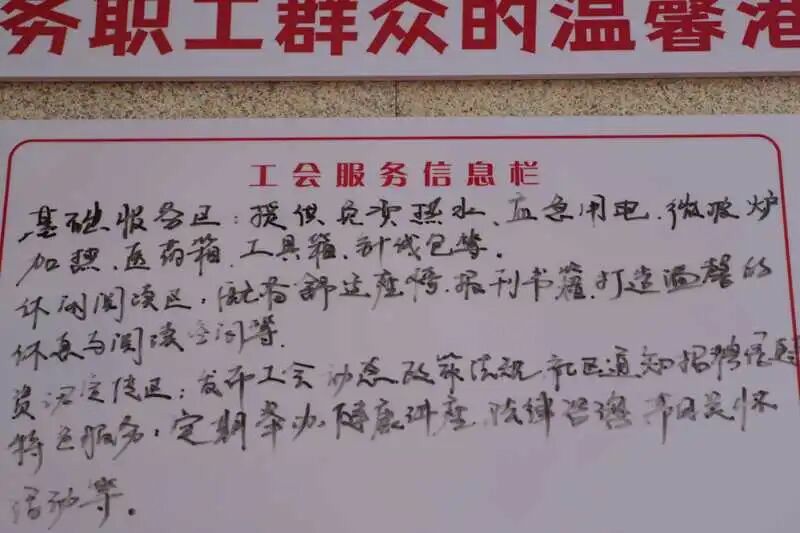 务职工群众的温馨港
工会服务信息栏
基础服务区：提供免费热水、应急用电、微波炉
加热、医药箱、工具箱、针线包等。
休闲阅读区：配备舒适座椅、报刊书籍,打造温馨的
休息与阅读空间等.
资讯宣传区：发布工会动态政策法规 社区通知招聘信息
特色服务：定期举办健康讲座 法律咨询 节日关怀
活动等。